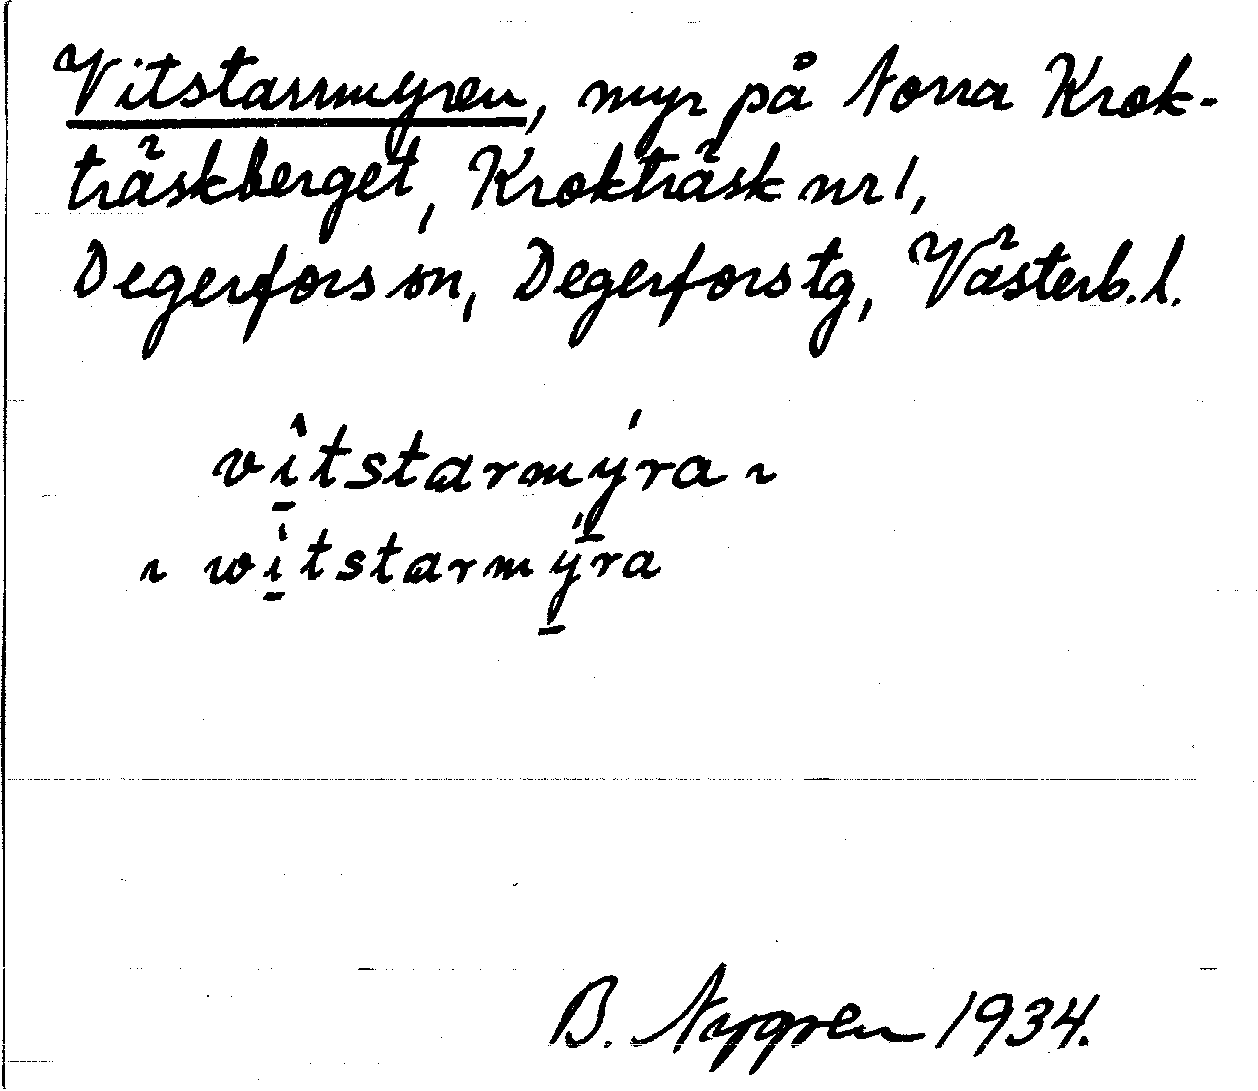 Vitstarrmyren, myr på Norra Krok-
träskberget, Krokträsk nr 1,
Degerfors sn, Degerfors tg, Västerb. l.
vî̱tstarmý̱ra ~
~ wì̱tstarmý̱ra
B. Nygren 1934.